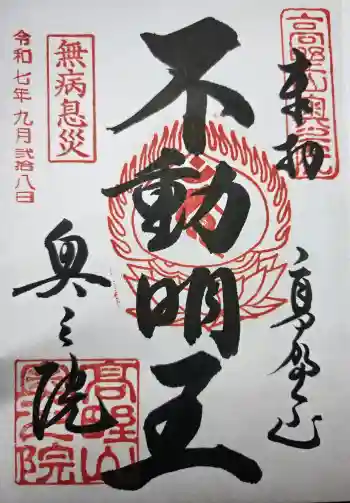 奉拝
高野山
不動明王
無病息災
奥之院
令和七年九月弐拾八日
高野山奥之院